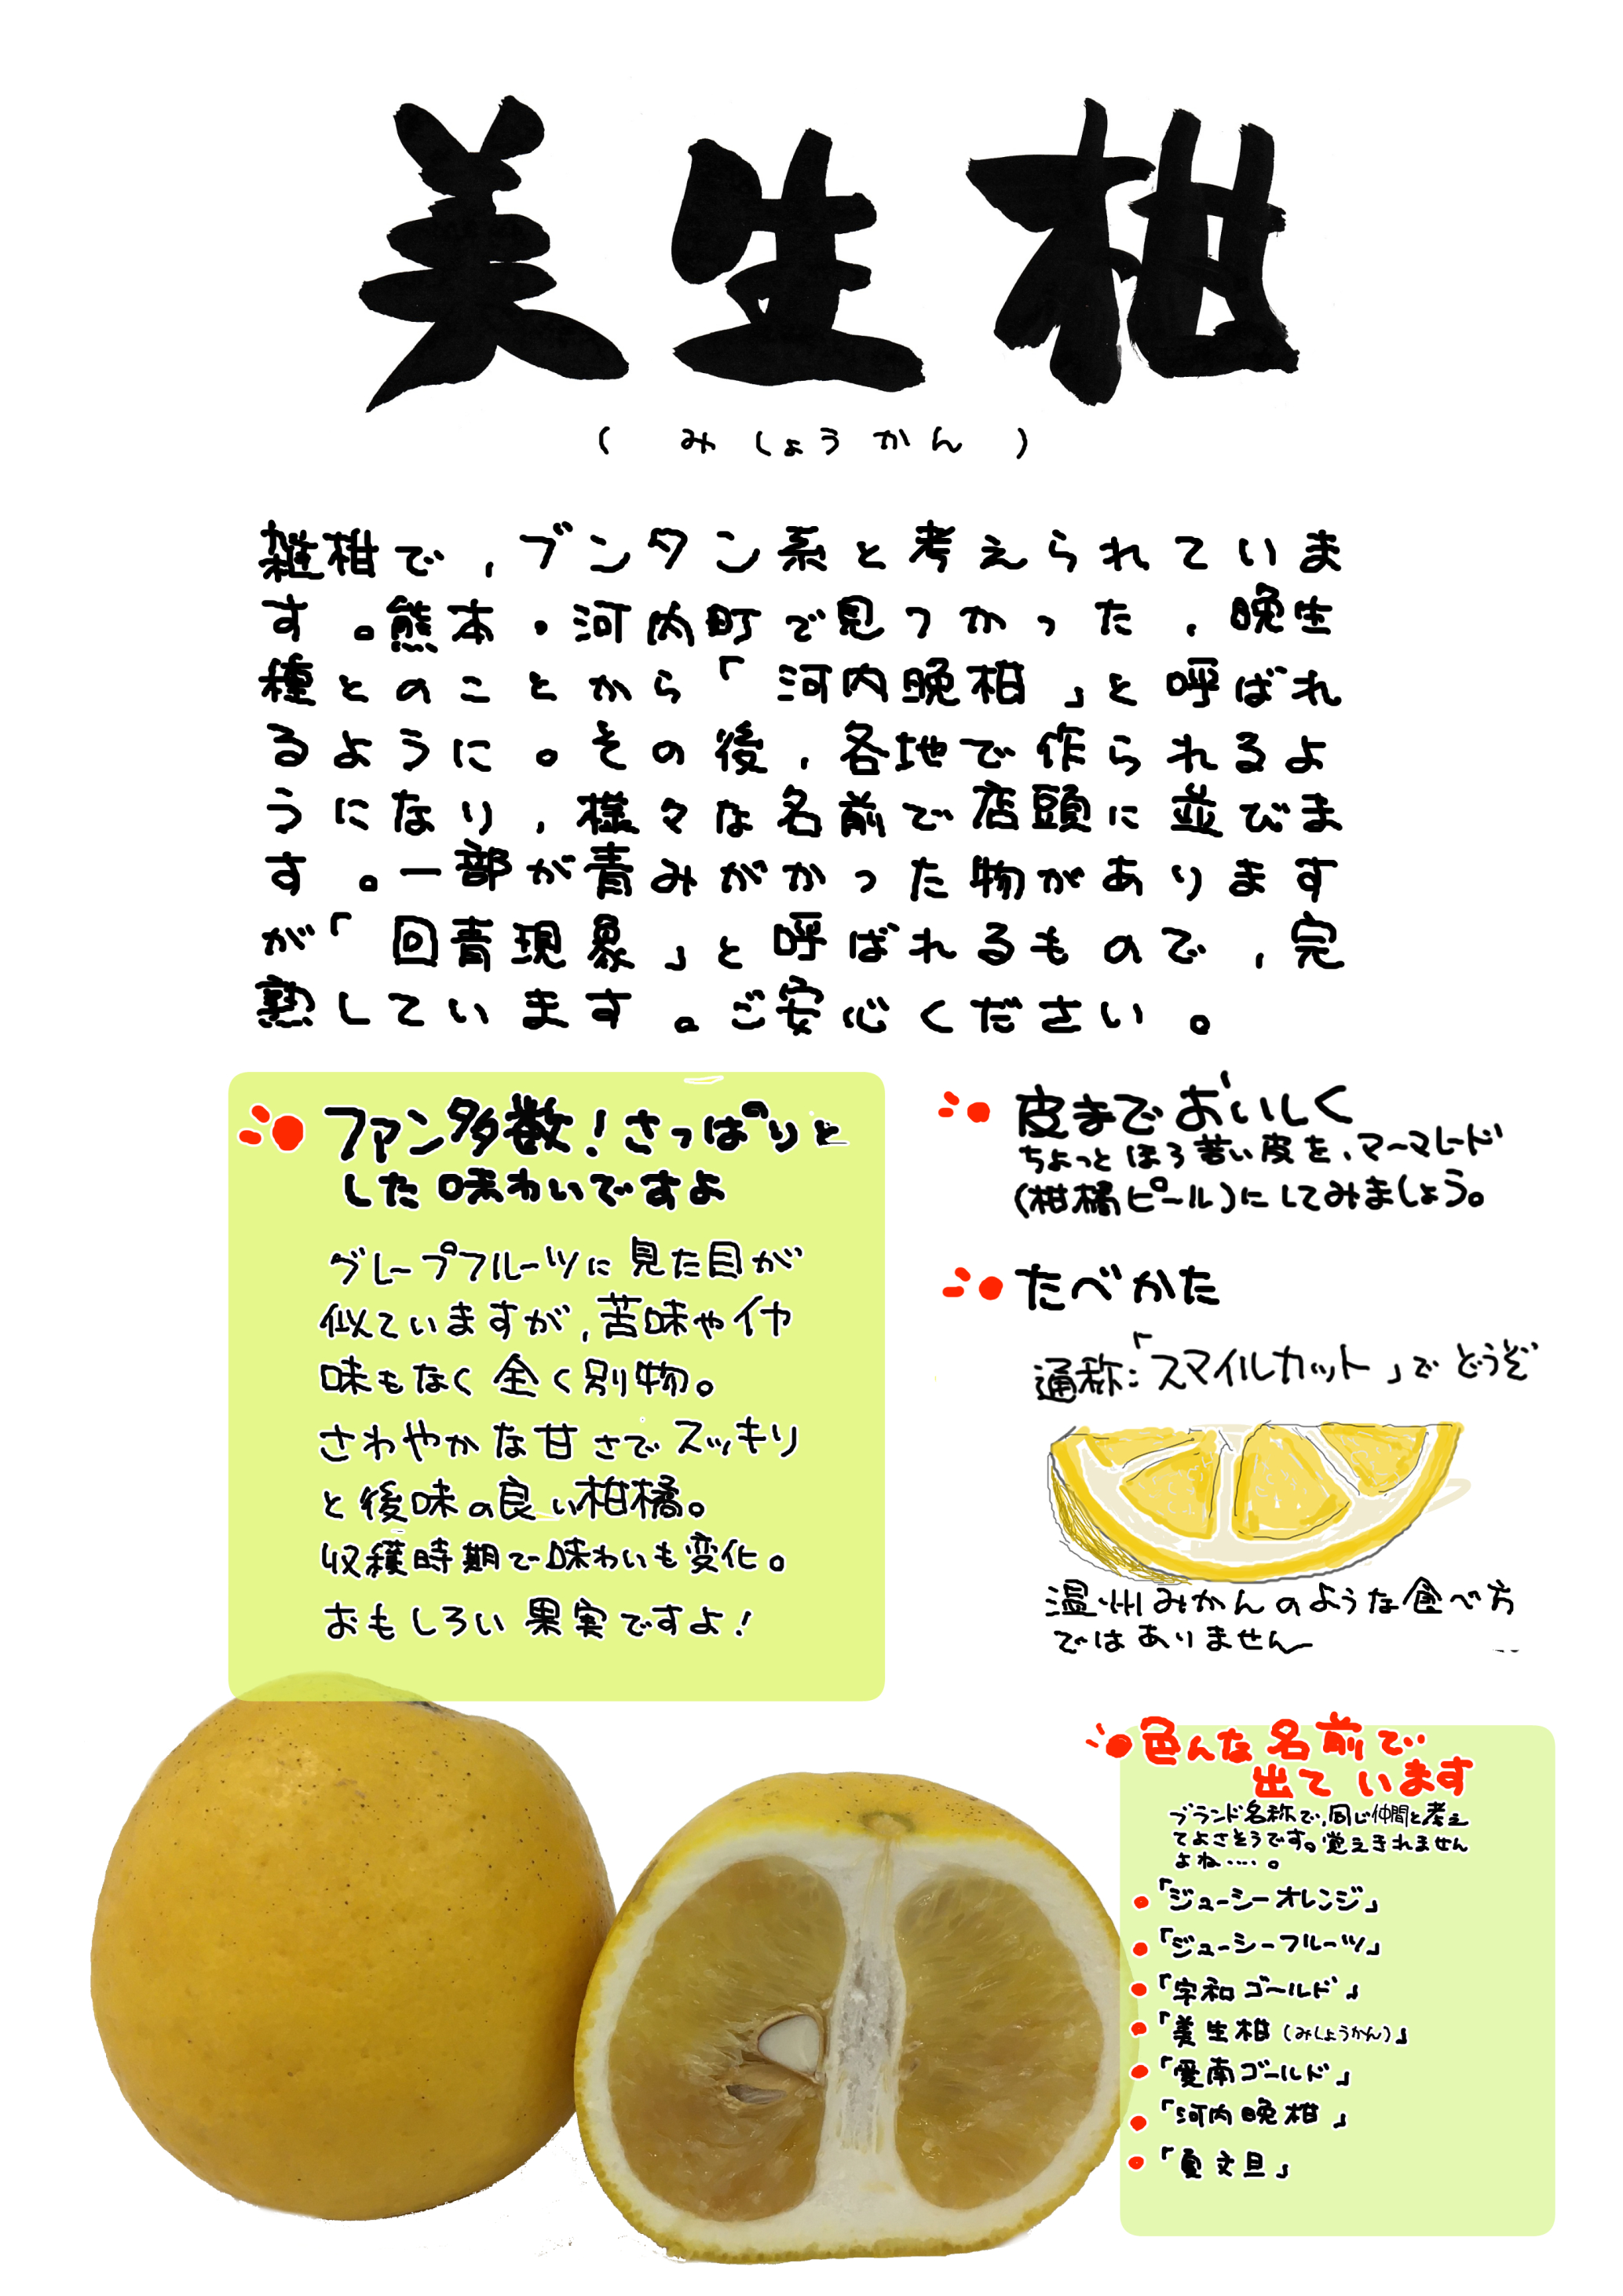 美生柑
(みしょうかん)
雑柑で,ブンタン系と考えられていま
す。熊本・河内町で見つかった,晩生
種とのことから「河内晩柑」と呼ばれ
るように。その後,各地で作られるよ
うになり,様々な名前で店頭に並びま
す。一部が青みがかった物があります
が「回青現象」と呼ばれるもので,完
熟しています。ご安心ください。
ファン多数!さっぱりと
した味わいですよ
グレープフルーツに見た目が
似ていますが,苦味やイヤ
味もなく全く別物。
さわやかな甘さでスッキリ
と後味の良い柑橘。
収穫時期で味わいも変化。
おもしろい果実ですよ!
皮までおいしく
ちょっとほろ苦い皮を,マーマレード
(柑橘ピール)にしてみましょう。
たべかた
通称:「スマイルカット」でどうぞ
温州みかんのような食べ方
ではありません
色んな名前で
出ています
ブランド名称で,同じ仲間と考え
てよさそうです。覚えきれません
よね‥‥。
「ジューシーオレンジ」
「ジューシーフルーツ」
「宇和ゴールド」
「美生柑(みしょうかん)」
「愛南ゴールド」
「河内晩柑」
「夏文旦」